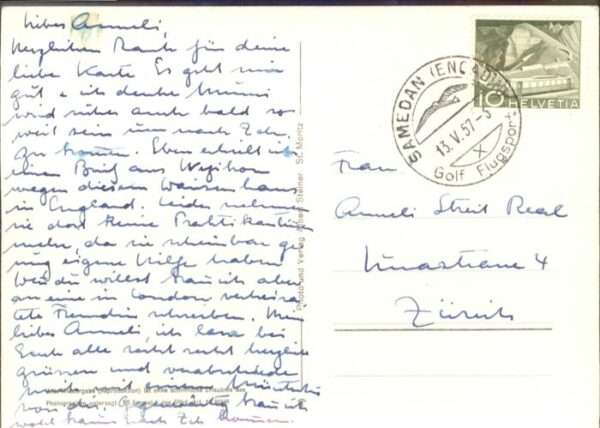 Liebes Anneli,
Herzlichen Dank für deine
liebe Karte Es geht mir
gut & ich denke Mimi
wird sicher auch bald so
weit sein um nach Zch.
zu kommen. Eben erhielt ich
einen Brief aus
wegen diesem Waisenhaus
in England. Leider nehmen
sie dort keine Praktikantin
mehr, da sie scheinbar ge-
nug eigene Hilfe haben
Wenn du willst kann ich aber
an eine in London verheira-
tete Freundin schreiben. Mein
liebes Anneli, ich lasse bei
Euch alle recht recht herzlich
grüssen und verabschiede
mich mit einem
von dir. kann ich
wohl kaum nach Zch kommen.
Photo und Verlag Albert Steiner St. Moritz
SAMEDAN (ENGADIN)
13.V.57-
Golf Flugsport
10 HELVETIA
Frau
Anneli Streit Real
4
Zürich